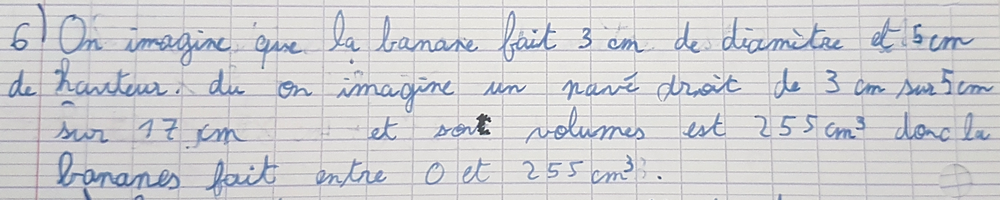 6) On imagine que la banane fait 3 cm de diamètre et 5 cm
de hauteur. du on imagine un pavé droit de 3 cm sur 5 cm
sur 17 cm et sont volumes est 255 cm³ donc la
bananes fait entre 0 et 255 cm³.